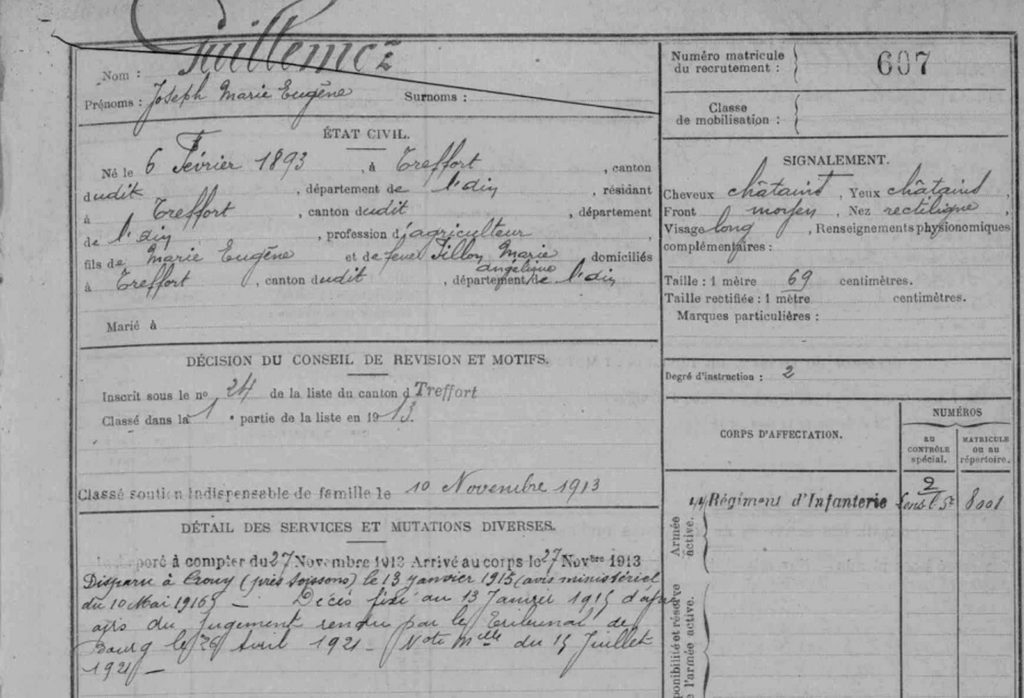 Guillemoz
Nom :
Prénoms : Joseph Marie Eugène Surnoms :
ÉTAT CIVIL.
Né le 6 Février 1893, à Treffort, canton
dudit, département de l'Ain, résidant
à Treffort, canton dudit, département
de l'Ain, profession d'agriculteur
fils de Marie Eugène et de feue Tillon Marie domiciliés
angélique
à Treffort, canton dudit, département de l'Ain
Marié à
DÉCISION DU CONSEIL DE REVISION ET MOTIFS.
Inscrit sous le no 24 de la liste du canton d Treffort
Classé dans la 1e partie de la liste en 1913.
Classé soutien indispensable de famille le 10 Novembre 1913
DÉTAIL DES SERVICES ET MUTATIONS DIVERSES.
poré à compter du 27 Novembre 1913 Arrivé au corps le 27 Novbre 1913
Disparu à Crouy (près Soissons) le 13 janvier 1915 (avis ministériel
du 10 Mai 1916) — Décès fixé au 13 Janvier 1915 d'après
du Jugement rendu par le Tribunal de
Bourg le 26 Avril 1921 — Note Mlle du 15 Juillet
1921 —
Numéro matricule
du recrutement : 607
Classe
de mobilisation :
SIGNALEMENT.
Cheveux châtains, Yeux châtains
Front moyen, Nez rectiligne
Visage long, Renseignements physionomiques
complémentaires :
Taille : 1 mètre 69 centimètres.
Taille rectifiée : 1 mètre centimètres.
Marques particulières :
Degré d'instruction : 2
CORPS D'AFFECTATION.
NUMÉROS
AU CONTRÔLE spécial.
MATRICULE OU AU répertoire.
44 Régiment d'Infanterie
2
8001
Armée active.
ponibilité et réserve
e l'armée active.